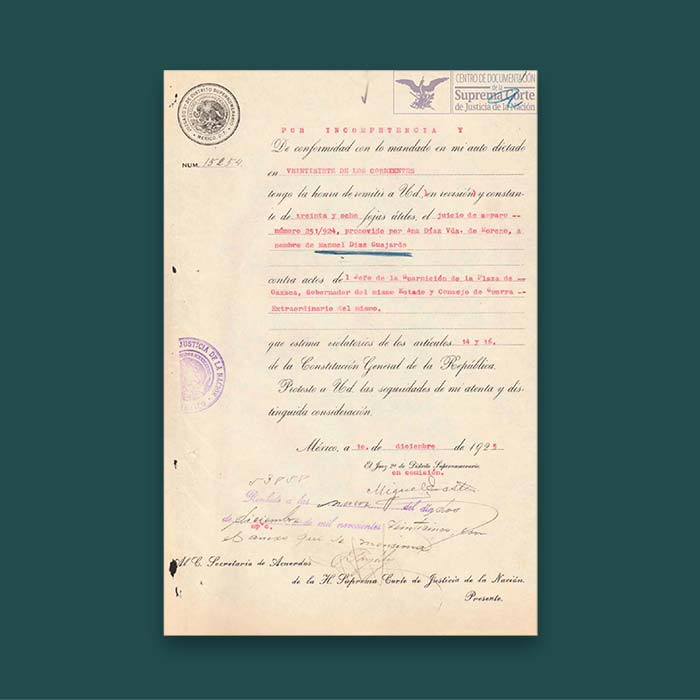 CENTRO DE DOCUMENTACIÓN
de la
Suprema Corte
de Justicia de la Nación
JUZGADO 2º DE DISTRITO SUPERNUMERARIO
MEXICO, D. F.
POR INCOMPETENCIA Y
De conformidad con lo mandado en mi auto dictado
NUM. 15254
en VEINTISIETE DE LOS CORRIENTES
tengo la honra de remitir a Ud. (en revisión) y constan-
te de treinta y ocho fojas útiles, el juicio de amparo --
número 251/924, promovido por Ana Díaz Vda. de Moreno, a
nombre de Manuel Díaz Guajardo
contra actos de l Jefe de la Guarnición de la Plaza de --
Oaxaca, Gobernador del mismo Estado y Consejo de Guerra --
Extraordinario del mismo,
que estima violatorios de los artículos 14 y 16.
JUSTICIA DE LA NACION
MEXICO
de la Constitución General de la República.
Protesto a Ud. las seguridades de mi atenta y dis-
tinguida consideración.
México, a 1o. de diciembre de 1925
El Juez 2º de Distrito Supernumerario,
en comisión.
Miguel
Recibido a las nueve del día dos
de diciembre de mil novecientos veinticinco con
mp c.
el anexo que se menciona
Al C. Secretario de Acuerdos
de la H. Suprema Corte de Justicia de la Nación.
Presente.